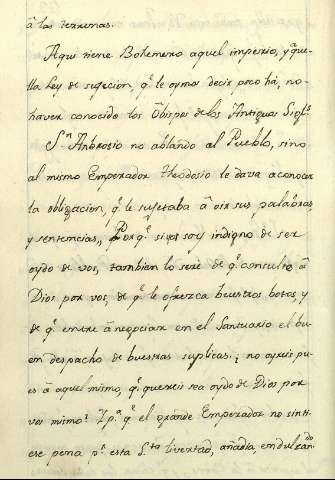 â las terrenas.
Aqui tiene Bohemero aquel imperio, y aque
lla Ley de sugecion, q.e le oymos decir poco há, no
haver conocido los Obispos de los Antiguos Sigl.s
S.n Ambrosio no ablando al Pueblo, sino
al mismo Emperador Theodosio le dava a conocer
la obligacion, q.e le sugetaba â oir sus palabras,
y sentencias,, Porq.e si yo soy indigno de ser
oydo de vos, tambien lo seré de q.e consulte â
Dios por vos, de q.e le ofrezca buestros botos, y
de q.e entre â negociar en el Santuario el bu
en despacho de buestras suplicas; no oyreis pu
es â aquel mismo, q.e quereis sea oydo de Dios por
vos mismo? Y p.a q.e el grande Emperador no sinti
ese pena p.r esta s.ta livertad, añadia, endulzando